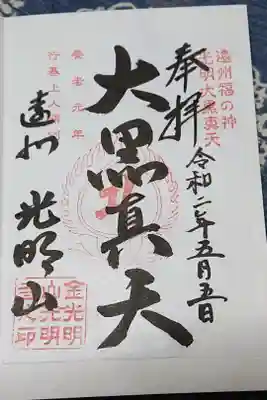 遠州福の神
光明大黒真天
奉拝
令和二年五月五日
大黒真天
養老元年
行基上人
遠州
光明山
金光明
山光明